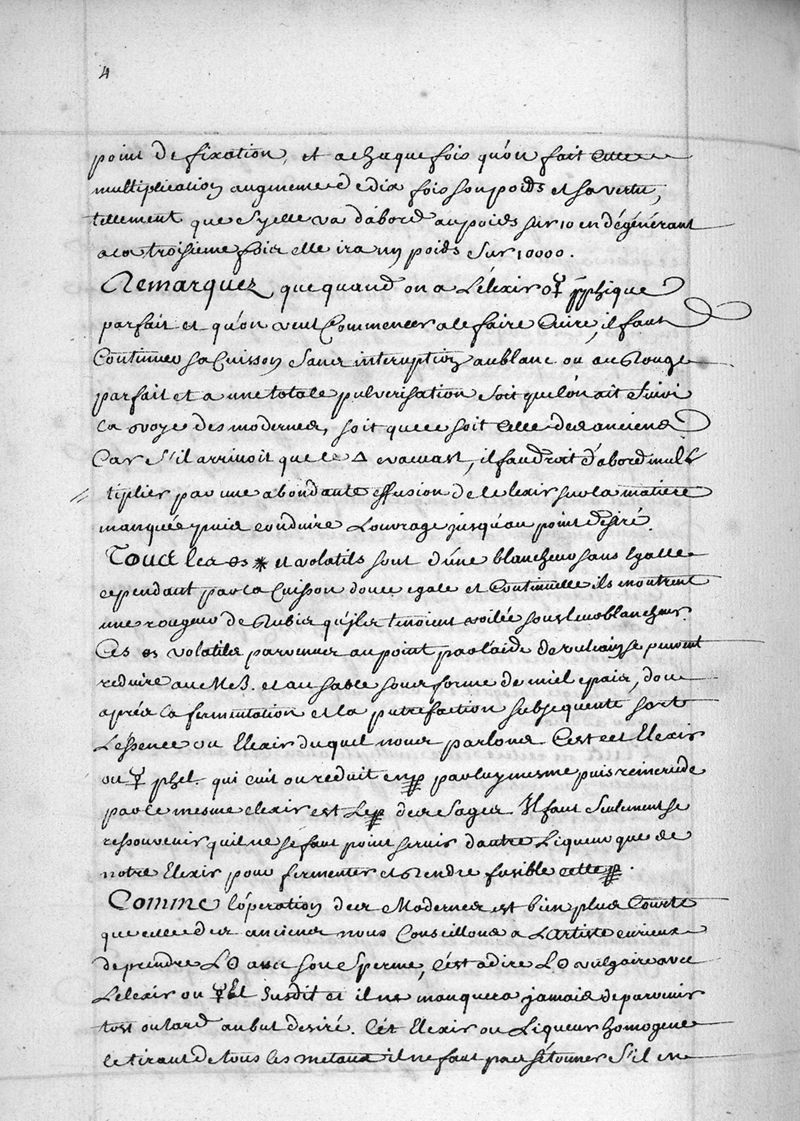 4
point de fixation, et a chaque fois qu'on fait cette
multiplication augmente de dix fois son poids et sa vertu,
tellement que sy elle va d'abord au poids sur 10 en dégénérant
a la troisieme fois elle ira un poids sur 10000.
Remarquez que quand on a L'élixir ou ☿ phique
parfait et qu'on veut Commencer a le faire Cuire, il faut
Continuer sa Cuisson sans interuption au blanc ou au Rouge
parfait et a une totale pulverisation soit que l'on ait suivi
la voye des modernes, soit que ce soit Celle des anciens
Car s'il arrivoit que le △ evacuast, il faudroit d'abord mul
tiplier par une abondante effusion de lelexir sur la matiere
manquée puis conduire L'ouvrage jusqu'au point désiré.
Tous les * et volatils sont d'une blancheur sans Egalle
cependant par la Cuisson douce egale et Continuelle ils montrent
une rougeur de Rubis qu'jls tenoient voilée sous leur blancheur.
Ces volatils parvenus au point par l'aide de se peuvent
reduire au M B. et au sable sous forme de miel epais, dou
après la fermentation et la putrefaction subsequente sort
L'essence ou Elexir duquel nous parlons C'est cet Elexir
ou ☿ phel. qui cuit ou reduit en par luy mesme puis reincrudé
par le mesme elexir est La des Sages Il faut seulement se
ressouvenir qu'il ne se faut point servir d'autre Liqueur que de
notre Elexir pour fermenter et Rendre fusible cette .
Comme l'opération des Modernes est bien plus Courte
que celle des anciens nous Conseillons a L'artiste curieux
de prendre L☉ avec son Sperme, C'est a dire L☉ vulgaire avec
L'elexir ou ☿ susdit et il ne manquera jamais de parvenir
tost ou tard au but desiré. Cét Elexir ou Liqueur homogene
se tirant de tous les metaux il ne faut pas s'étonner s'il en